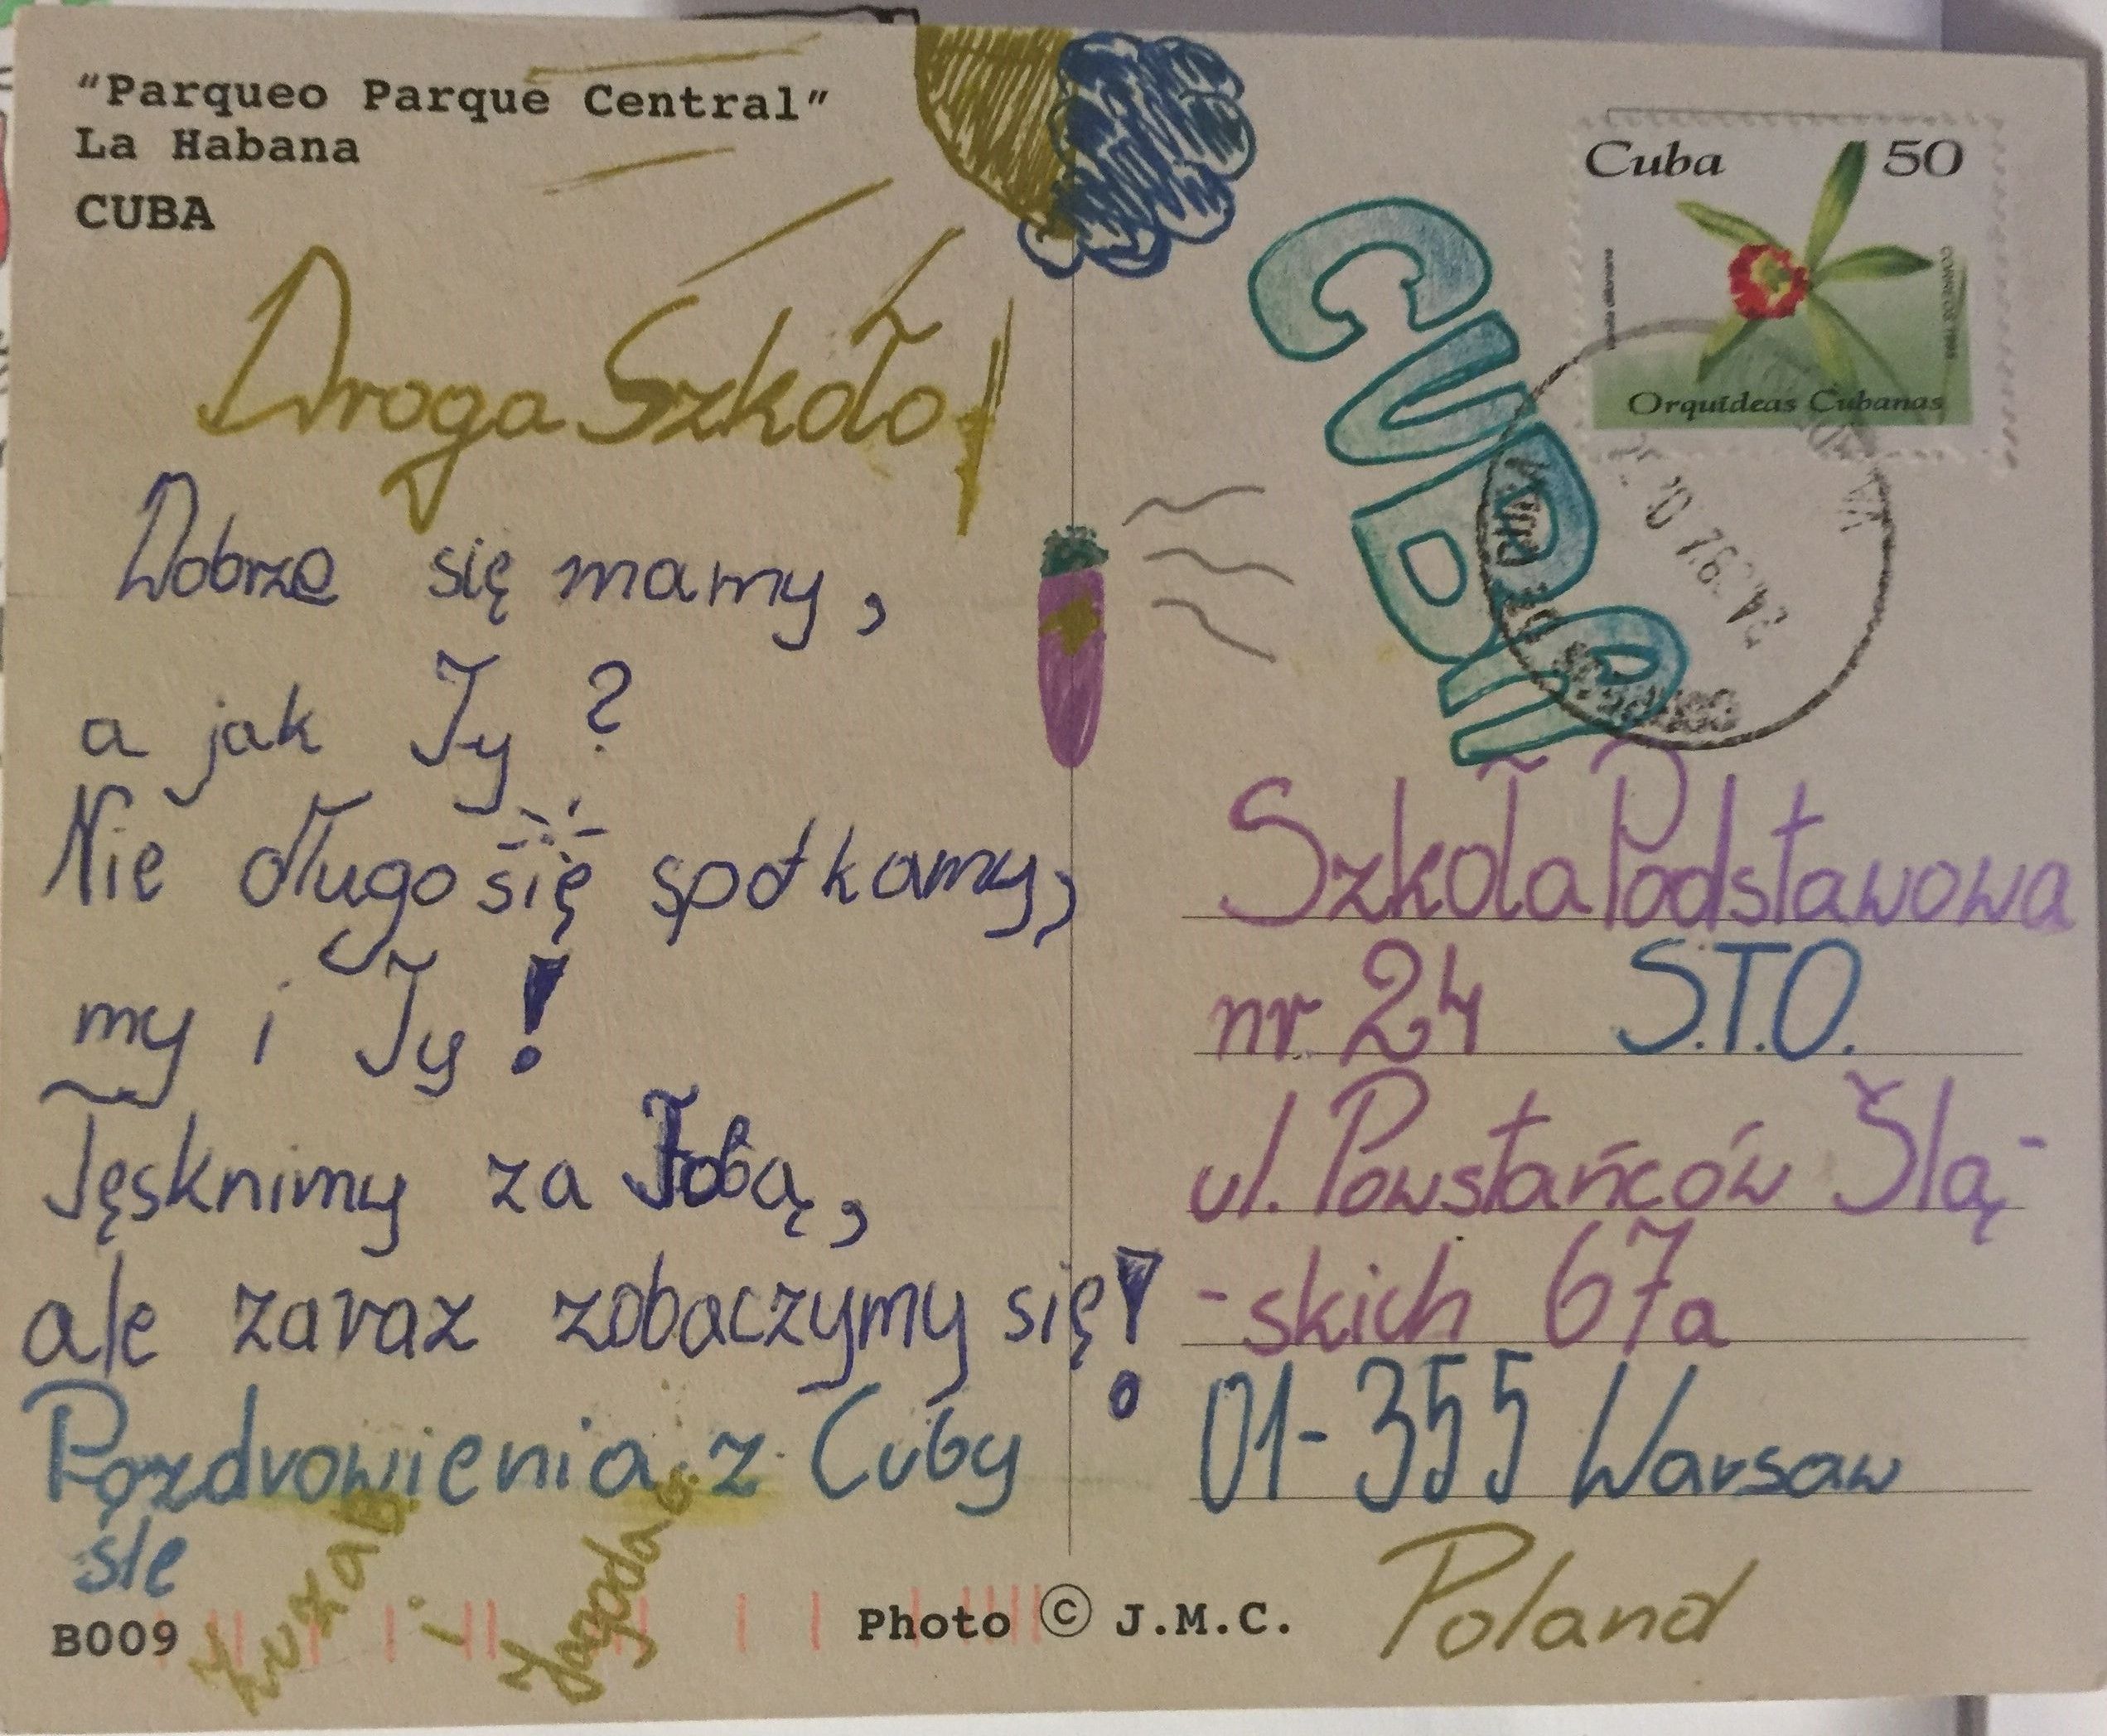 "Parqueo Parque Central"
La Habana
CUBA
Droga Szkoło!
Dobrze się mamy,
a jak Ty?
Nie długo się spotkamy,
my i Ty!
Tęsknimy za Tobą,
ale zaraz zobaczymy się!
Pozdrowienia z Cuby
śle
Zuza B.
i
Jagoda G.
B009
Photo © J.M.C.
CUBA
Cuba 50
Orquídeas Cubanas
Szkoła Podstawowa
nr 24 S.T.O.
ul. Powstańców Ślą-
-skich 67a
01-355 Warsaw
Poland